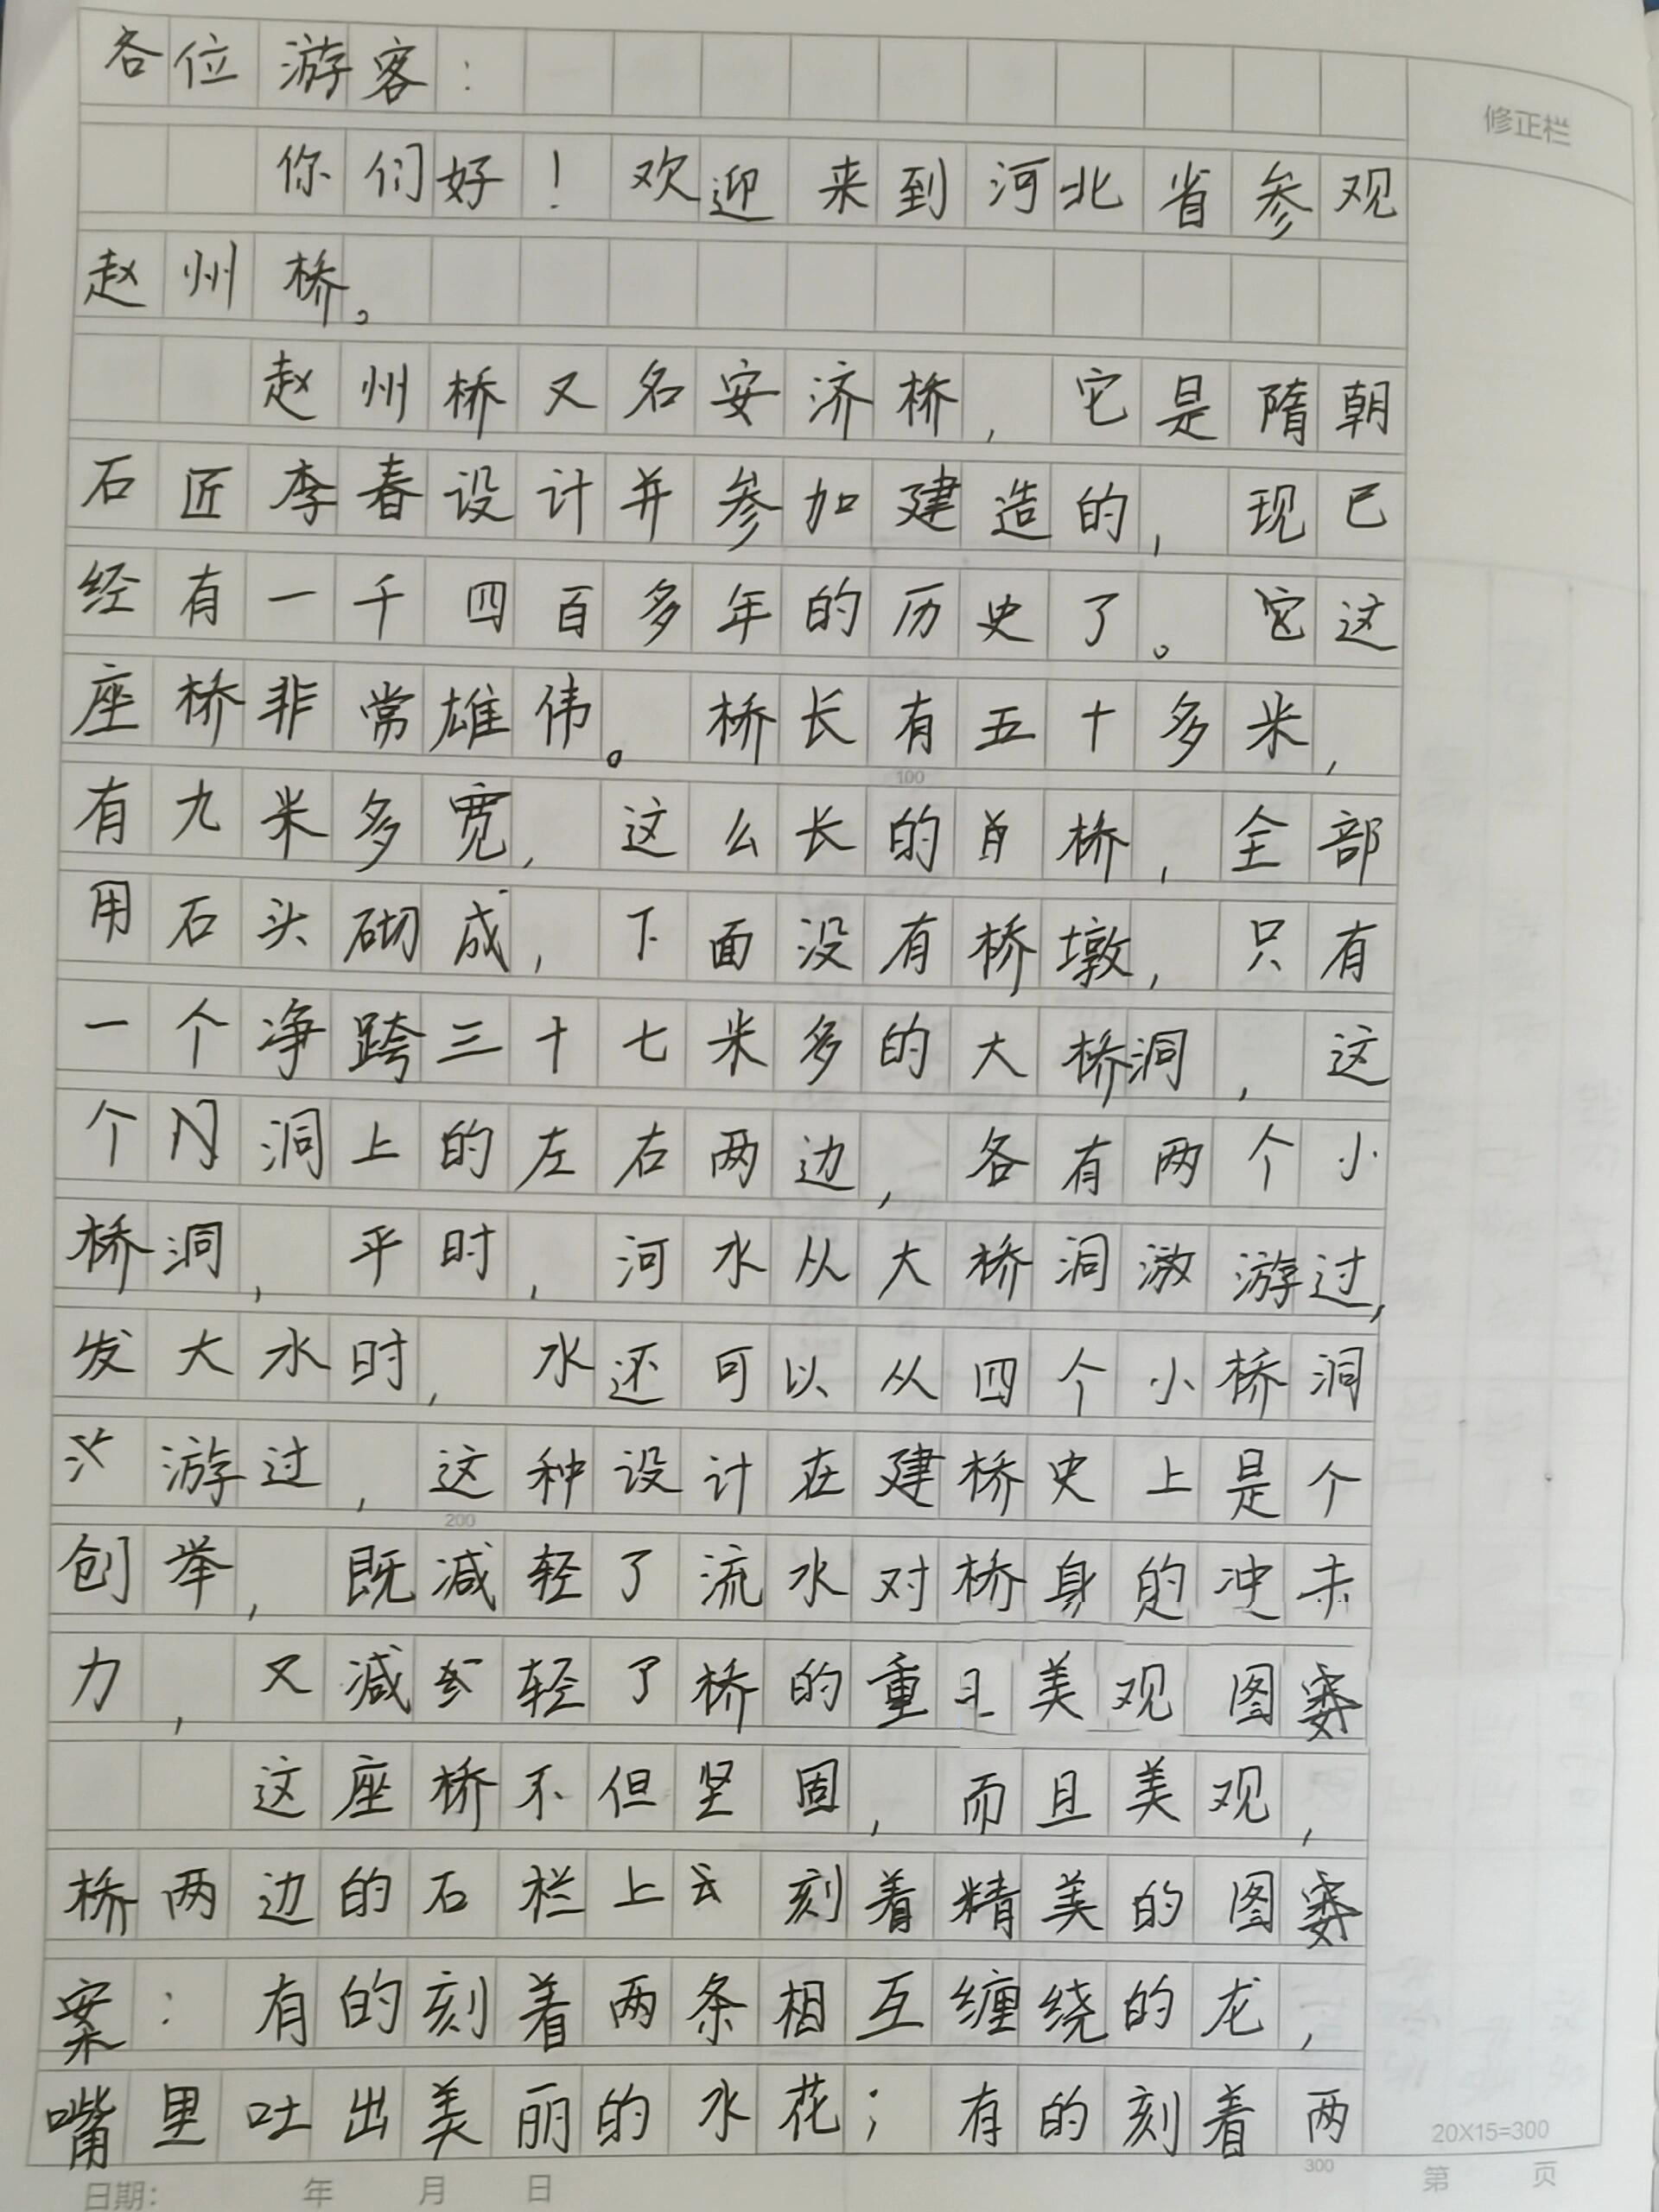 各位游客：
修正栏
你们好！欢迎来到河北省参观
赵州桥。
赵州桥又名安济桥，它是隋朝
石匠李春设计并参加建造的，现已
经有一千四百多年的历史了。它这
座桥非常雄伟。桥长有五十多米，
100
有九米多宽，这么长的桥，全部
用石头砌成，下面没有桥墩，只有
一个净跨三十七米多的大桥洞，这
个洞上的左右两边，各有两个小
桥洞，平时，河水从大桥洞游过，
发大水时，水还可以从四个小桥洞
游过，这种设计在建桥史上是个
200
创举，既减轻了流水对桥身的冲
力，又减轻了桥的重且美观图
这座桥不但坚固，而且美观，
桥两边的石栏上刻着精美的图
案：有的刻着两条相互缠绕的龙，
嘴里吐出美丽的水花；有的刻着两
20X15=300
300
日期： 年 月 日
第 页